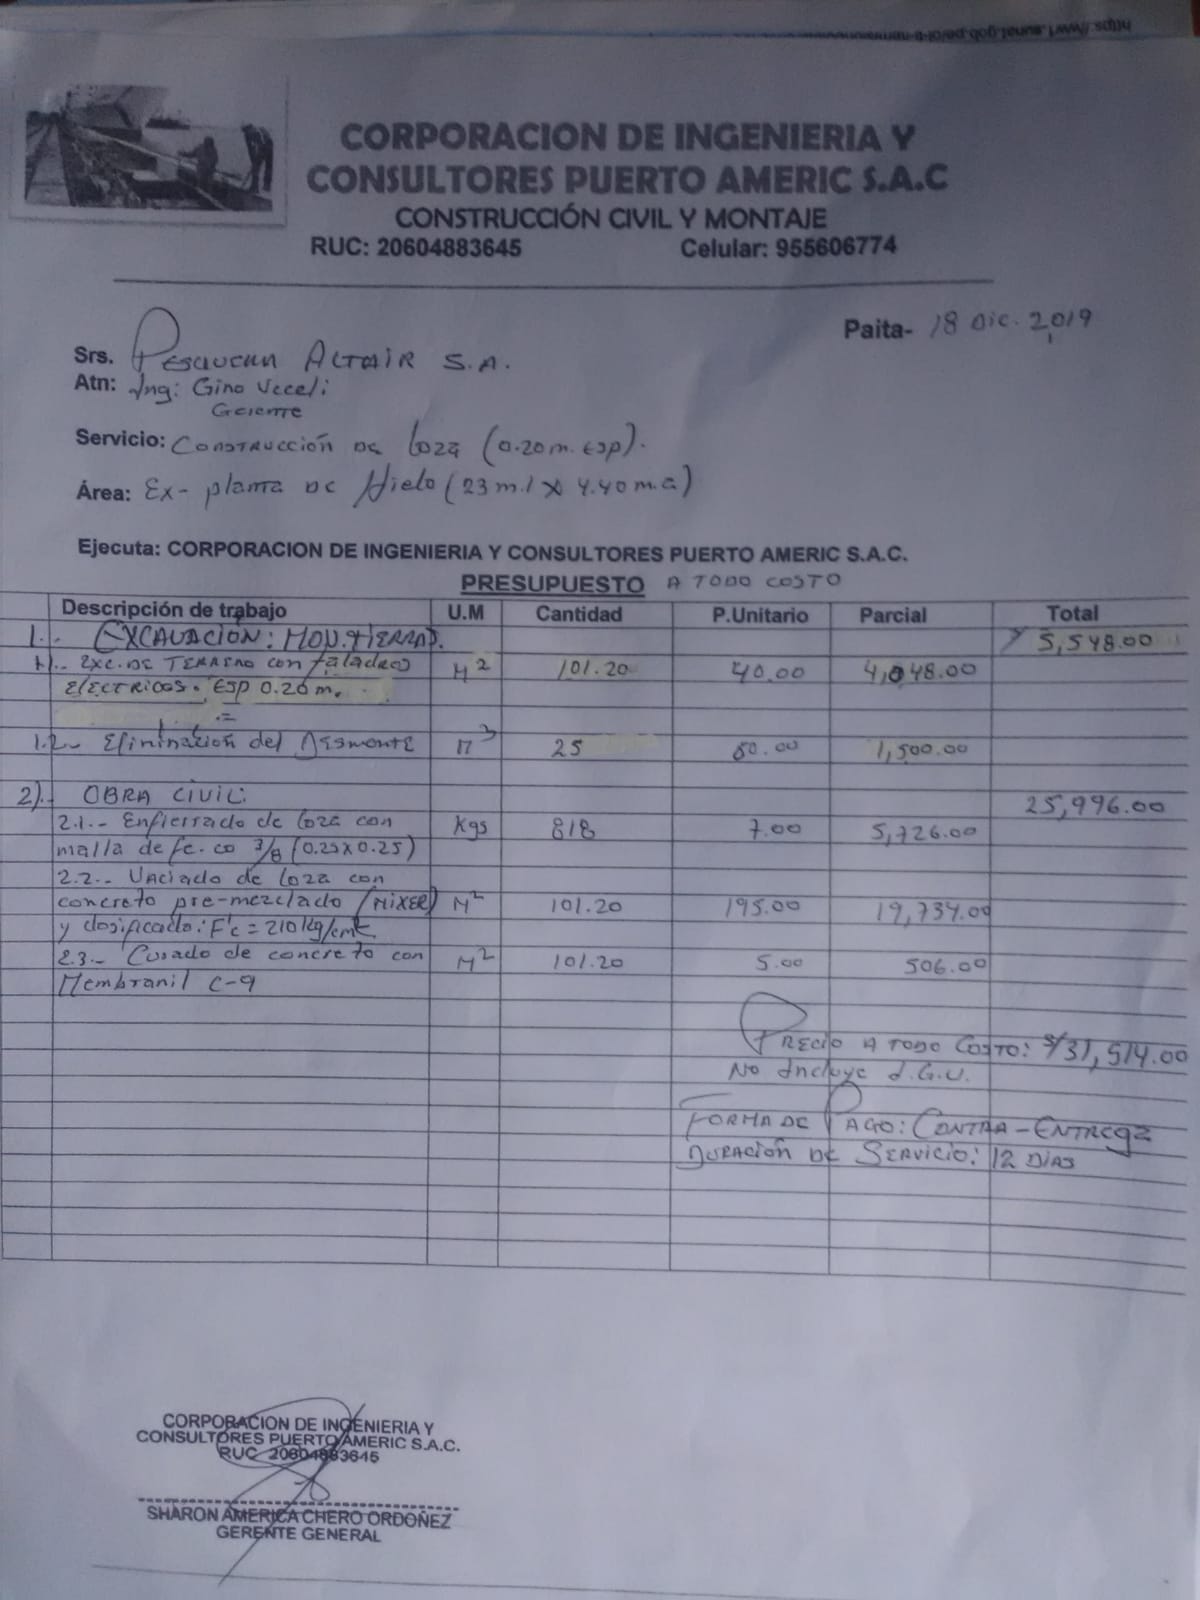 CORPORACION DE INGENIERIA Y
CONSULTORES PUERTO AMERIC S.A.C
CONSTRUCCIÓN CIVIL Y MONTAJE
RUC: 20604883645 Celular: 955606774
Paita- 18 Dic. 2,019
Srs. PESQUERA ALTAIR S.A.
Atn: Ing: Gino Veceli
Gerente
Servicio: CONSTRUCCIÓN DE loza (0.20 m. ESP).
Área: Ex- planta DE Hielo (23 m.l x 4.40 m.a)
Ejecuta: CORPORACION DE INGENIERIA Y CONSULTORES PUERTO AMERIC S.A.C.
PRESUPUESTO A TODO COSTO
Descripción de trabajo U.M Cantidad P.Unitario Parcial Total
1.- EXCAVACIÓN: MOV. TIERRAS. 5,548.00
EXC. DE TERRENO con taladros M2 101.20 40.00 4,048.00
ELECTRICOS. ESP 0.20 m.
1.2.- Eliminación del Desmonte M3 25 60.00 1,500.00
2). OBRA CIVIL: 25,996.00
2.1.- Enfierrado de loza con Kgs 818 7.00 5,726.00
malla de fe. co 3/8 (0.25 x 0.25)
2.2.- Vaciado de loza con
concreto pre-mezclado (MIXER) M2 101.20 195.00 19,734.00
y dosificado: F'c = 210 kg/cm2
2.3.- Curado de concreto con M2 101.20 5.00 506.00
Membranil C-9
PRECIO A TODO COSTO: S/31,514.00
No Incluye I.G.V.
FORMA DE PAGO: CONTRA-ENTREGA
DURACIÓN DE SERVICIO: 12 DIAS
CORPORACION DE INGENIERIA Y
CONSULTORES PUERTO AMERIC S.A.C.
RUC 20604883645
SHARON AMERICA CHERO ORDOÑEZ
GERENTE GENERAL